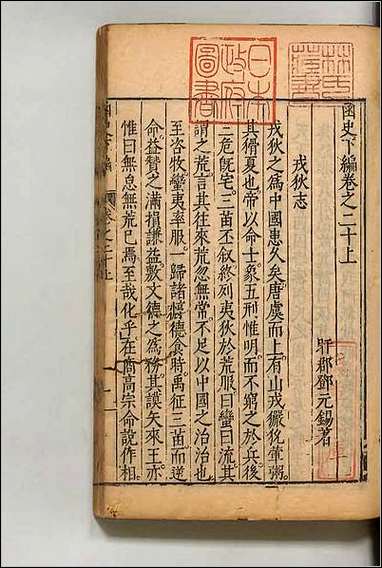 函史下編卷之二十上
盱郡鄧元錫著
戎狄志
戎狄之為中國患久矣唐虞而上有山戎獫狁葷粥
其猾夏也帝以命士夔五刑惟明而不窮之於兵後
三危旣宅三苗丕叙終列夷狄於荒服曰蠻曰流其
謂之荒言其往來荒忽無常不足以中國之治治也
至咨牧蠻夷率服一歸諸惇德食時禹征三苗而逆
命益贊之滿損謙益敷文德之為務其謨大來王亦
惟曰無怠無荒已焉至哉化乎在商高宗命說作相
日本
政府
圖書
林氏
藏書